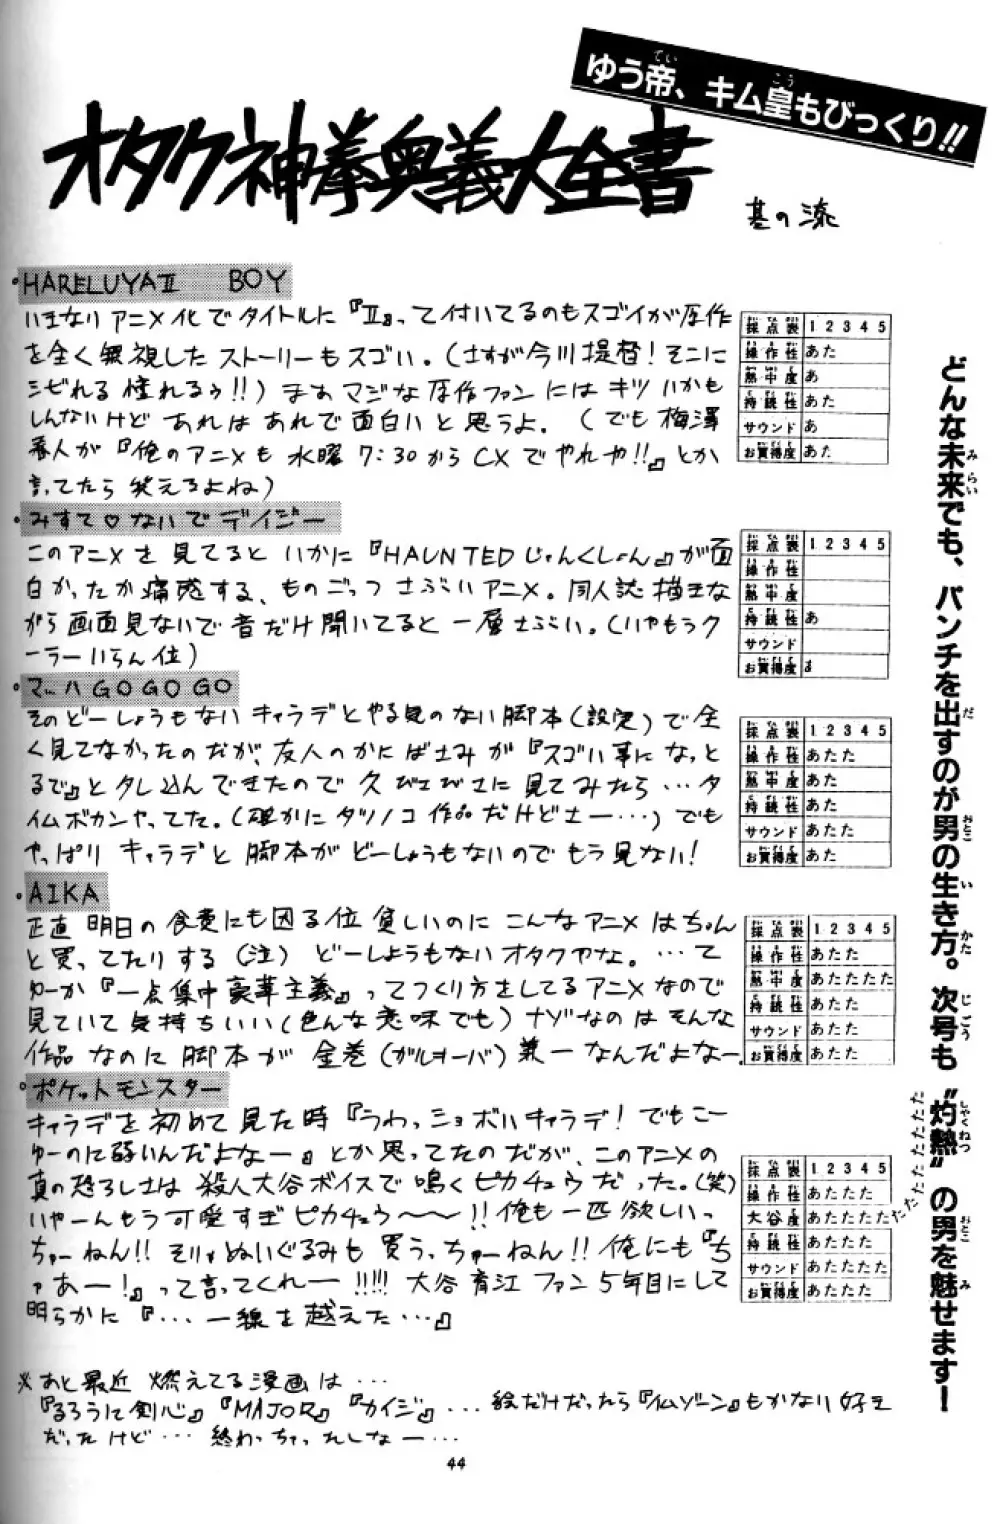 ゆう帝、キム皇もびっくり!!
オタク神拳奥義大全書
基の流
・HARELUYAⅡ BOY
いきなりアニメ化でタイトルに『Ⅱ』って付いてるのもスゴイが原作
を全く無視したストーリーもスゴい。(さすが今川提督!そこに
シビれる憧れるぅ!!)まあマジな原作ファンにはキツいかも
しんないけどあれはあれで面白いと思うよ。(でも梅澤
春人が『俺のアニメも水曜7:30からCXでやれや!!』とか
言ってたら笑えるよね)
採点表 1 2 3 4 5
操作性 あた
熱中度 あ
持続性 あた
サウンド あ
お買得度 あた
・みすて♡ないでデイジー
このアニメを見てるといかに『HAUNTEDじゃんくしょん』が面
白かったか痛感する、ものごっつさぶいアニメ。同人誌描きな
がら画面見ないで音だけ聞いてると一層さぶい。(いやもうク
ーラーいらん位)
採点表 1 2 3 4 5
操作性
熱中度
持続性 あ
サウンド
お買得度 ま
・マッハGOGOGO
そのどーしょうもないキャラデとやる気のない脚本(設定)で全
く見てなかったのだが、友人のかにばさみが『スゴい事になっと
るで』とタレ込んできたので久びさびさに見てみたら・・・タ
イムボカンやってた。(確かにタツノコ作品だけどさー・・・)でも
やっぱりキャラデと脚本がどーしょうもないのでもう見ない!
採点表 1 2 3 4 5
操作性 あたた
熱中度 あた
持続性 あた
サウンド あたた
お買得度 あた
・AIKA
正直明日の食費にも困る位貧しいのにこんなアニメはちゃん
と買ってたりする(注)どーしようもないオタクやな。・・・て
ゆーか『一点集中豪華主義』ってつくり方をしてるアニメなので
見ていて気持ちいい(色んな意味でも)ナゾなのはそんな
作品なのに脚本が全巻(ガルキーバ)兼一なんだよなー
採点表 1 2 3 4 5
操作性 あたた
熱中度 あたたたた
持続性 あたた
サウンド あたた
お買得度 あたた
・ポケットモンスター
キャラデを初めて見た時『うわっショボいキャラデ!でもこー
ゆーのに弱いんだよなー』とか思ってたのだが、このアニメの
真の恐ろしさは殺人大谷ボイスで鳴くピカチュウだった。(笑)
いやーんもう可愛すぎピカチュウ〜〜!!俺も一匹欲しいっ
ちゅーねん!!そりゃぬいぐるみも買うっちゅーねん!!俺にも『ち
ァあー!』って言ってくれー!!!!!大谷育江ファン5年目にして
明らかに『・・・一線を越えた・・・』
採点表 1 2 3 4 5
操作性 あたたた
大谷度 あたたたたたたたたたたたたた
持続性 あたたた
サウンド あたたたた
お買得度 あたたた
※あと最近燃えてる漫画は・・・
『るろうに剣心』『MAJOR』『カイジ』・・・絵だけだったら『仏ゾーン』もかなり好き
だったけど・・・終わっちゃったしなー・・・
どんな未来でも、パンチを出すのが男の生き方。次号も“灼熱”の男を魅せます!
44